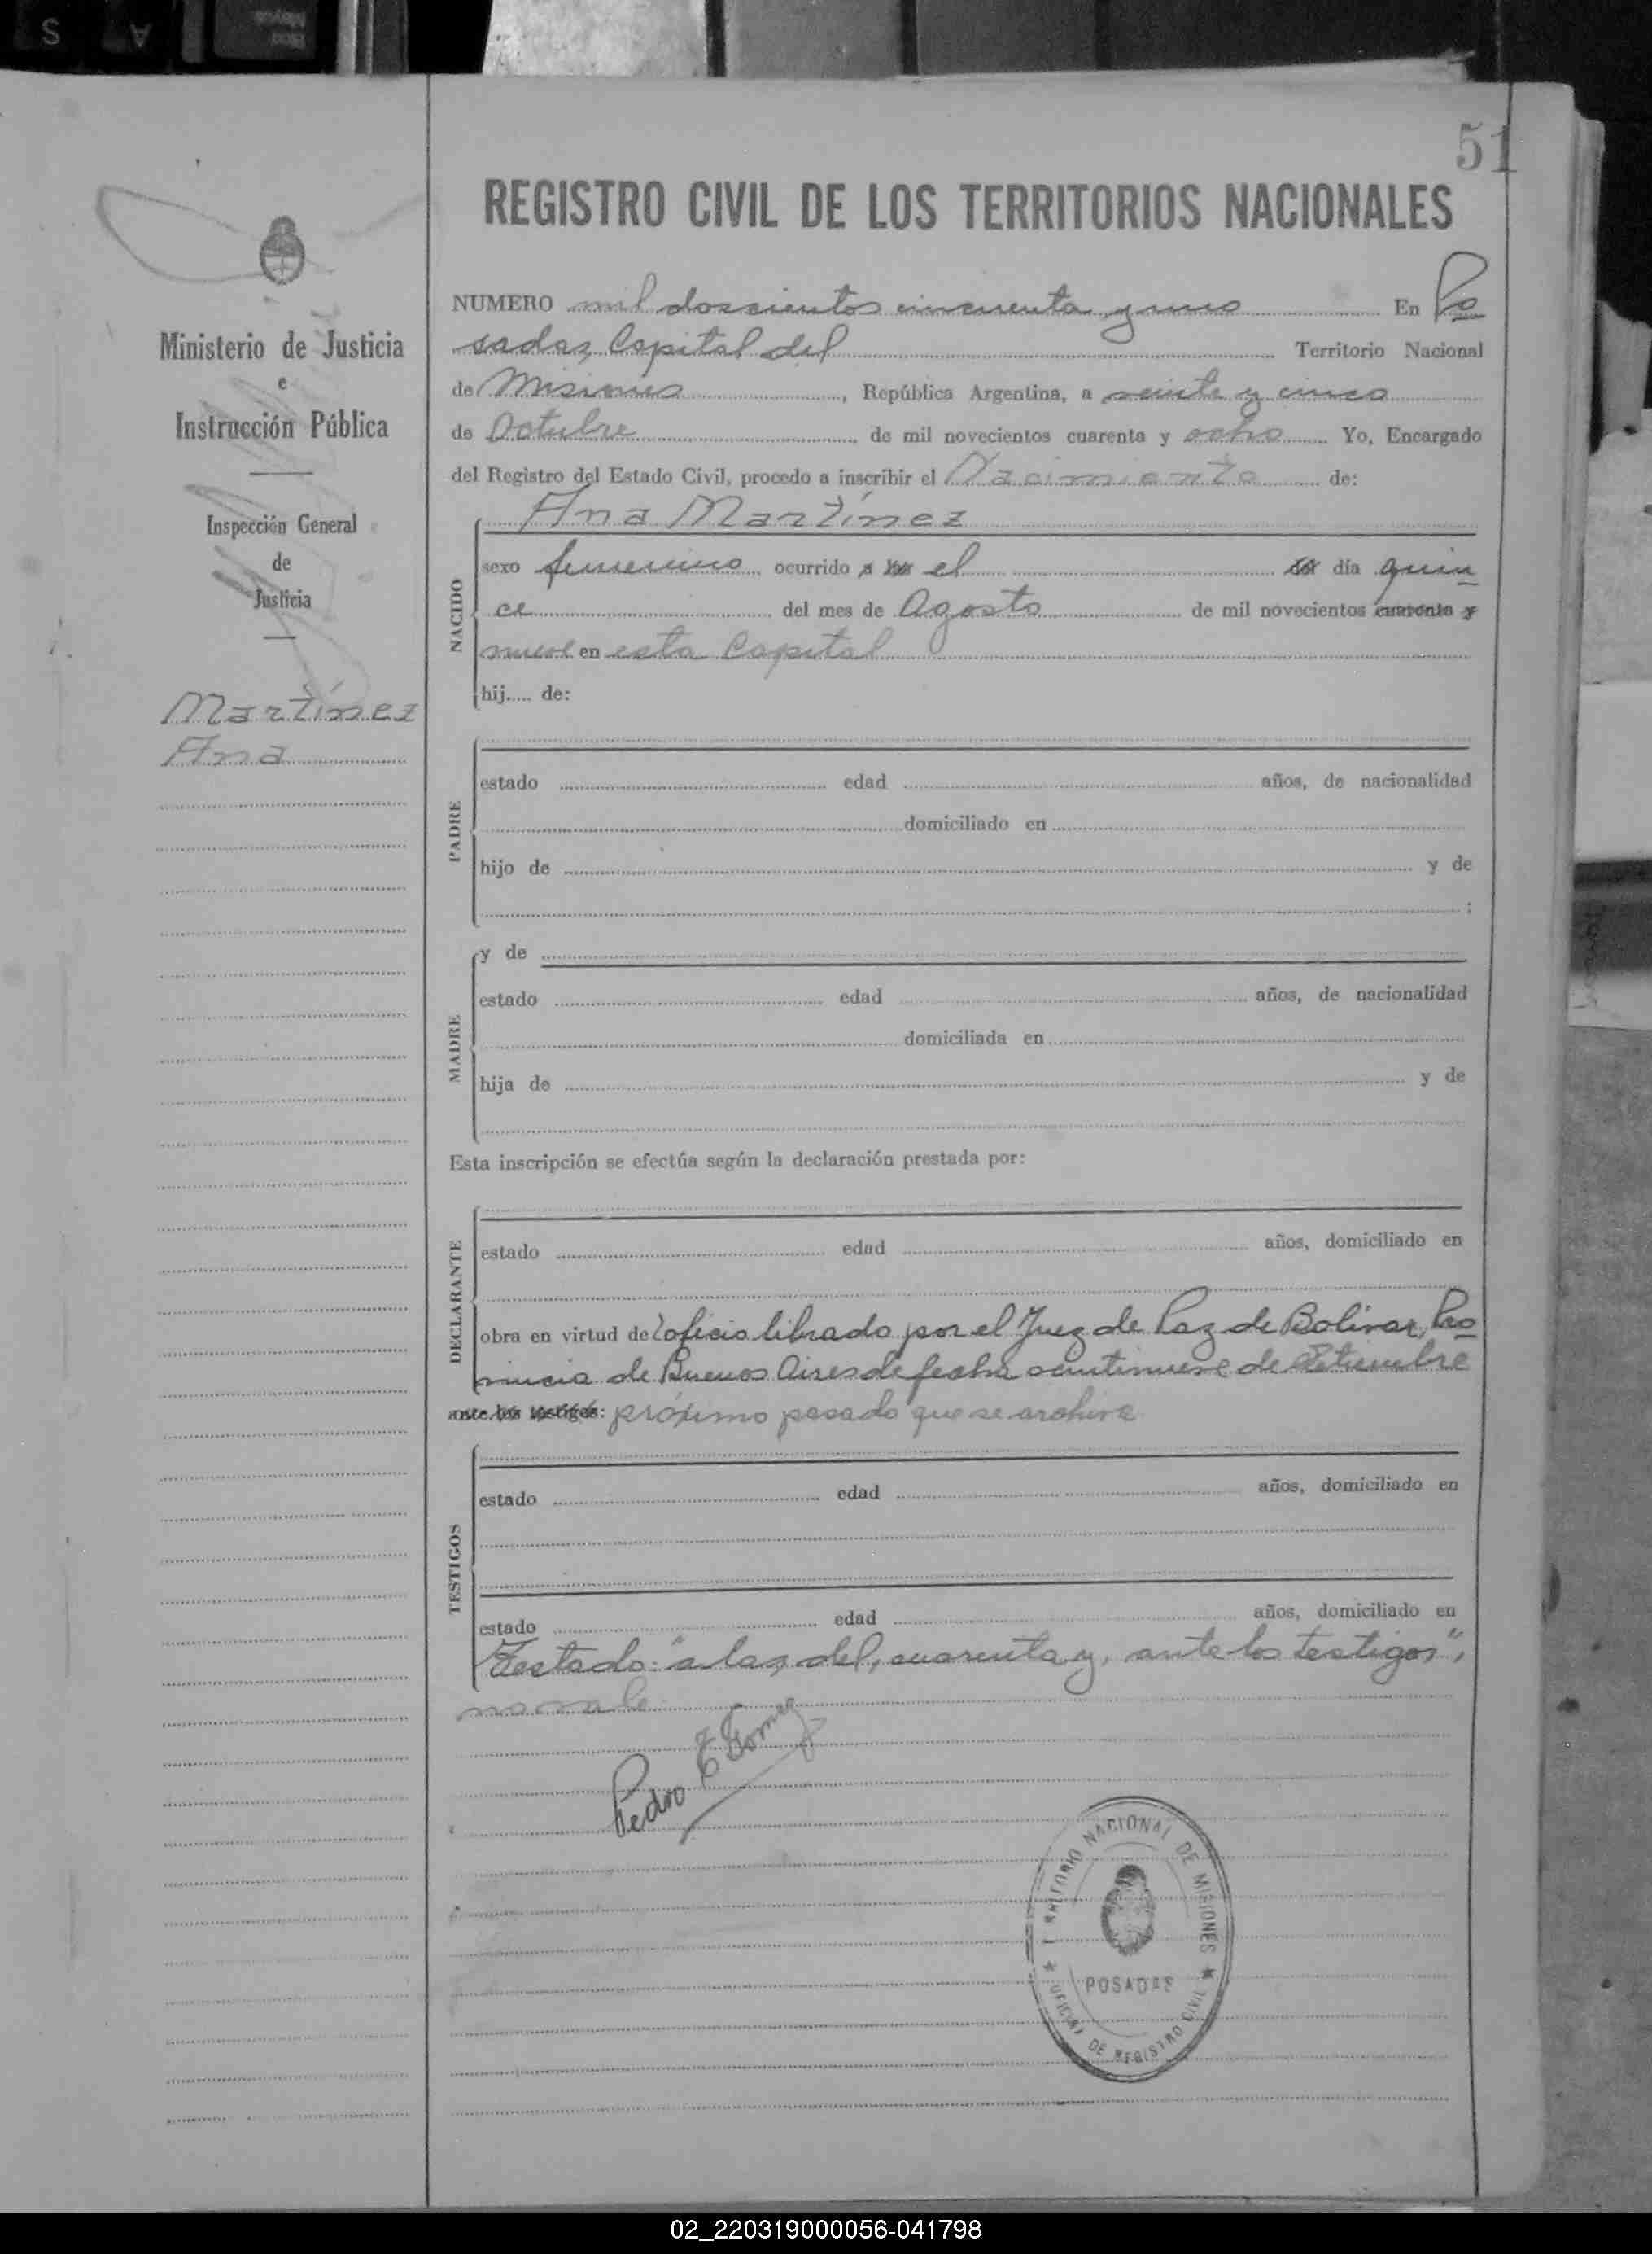 51
REGISTRO CIVIL DE LOS TERRITORIOS NACIONALES
Ministerio de Justicia
e
Instrucción Pública
Inspección General
de
Justicia
Martínez
Ana
NUMERO mil doscientos cincuenta y uno En Po
sadas, Capital del Territorio Nacional
de Misiones, República Argentina, a veinte y cinco
de Octubre de mil novecientos cuarenta y ocho Yo, Encargado
del Registro del Estado Civil, procedo a inscribir el Nacimiento de:
Ana Martínez
NACIDO
sexo femenino ocurrido a las el del día quin
ce del mes de Agosto de mil novecientos cuarenta y
nueve en esta Capital
hij..... de:
PADRE
estado edad años, de nacionalidad
domiciliado en
hijo de y de
;
MADRE
y de
estado edad años, de nacionalidad
domiciliada en
hija de y de
Esta inscripción se efectúa según la declaración prestada por:
DECLARANTE
estado edad años, domiciliado en
obra en virtud de oficio librado por el Juez de Paz de Bolívar, Pro
vincia de Buenos Aires de fecha veintinueve de Setiembre
ante los testigos: próximo pasado que se archiva
TESTIGOS
estado edad años, domiciliado en
estado edad años, domiciliado en
Testado: "a las, del, cuarenta y, ante los testigos",
no vale
Pedro E Gomez
TERRITORIO NACIONAL DE MISIONES
POSADAS
OFICINA DE REGISTRO CIVIL
02_220319000056-041798